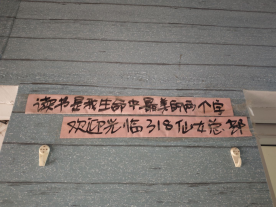 读书是我生命中最美的两个字
欢迎光临318仙女总部